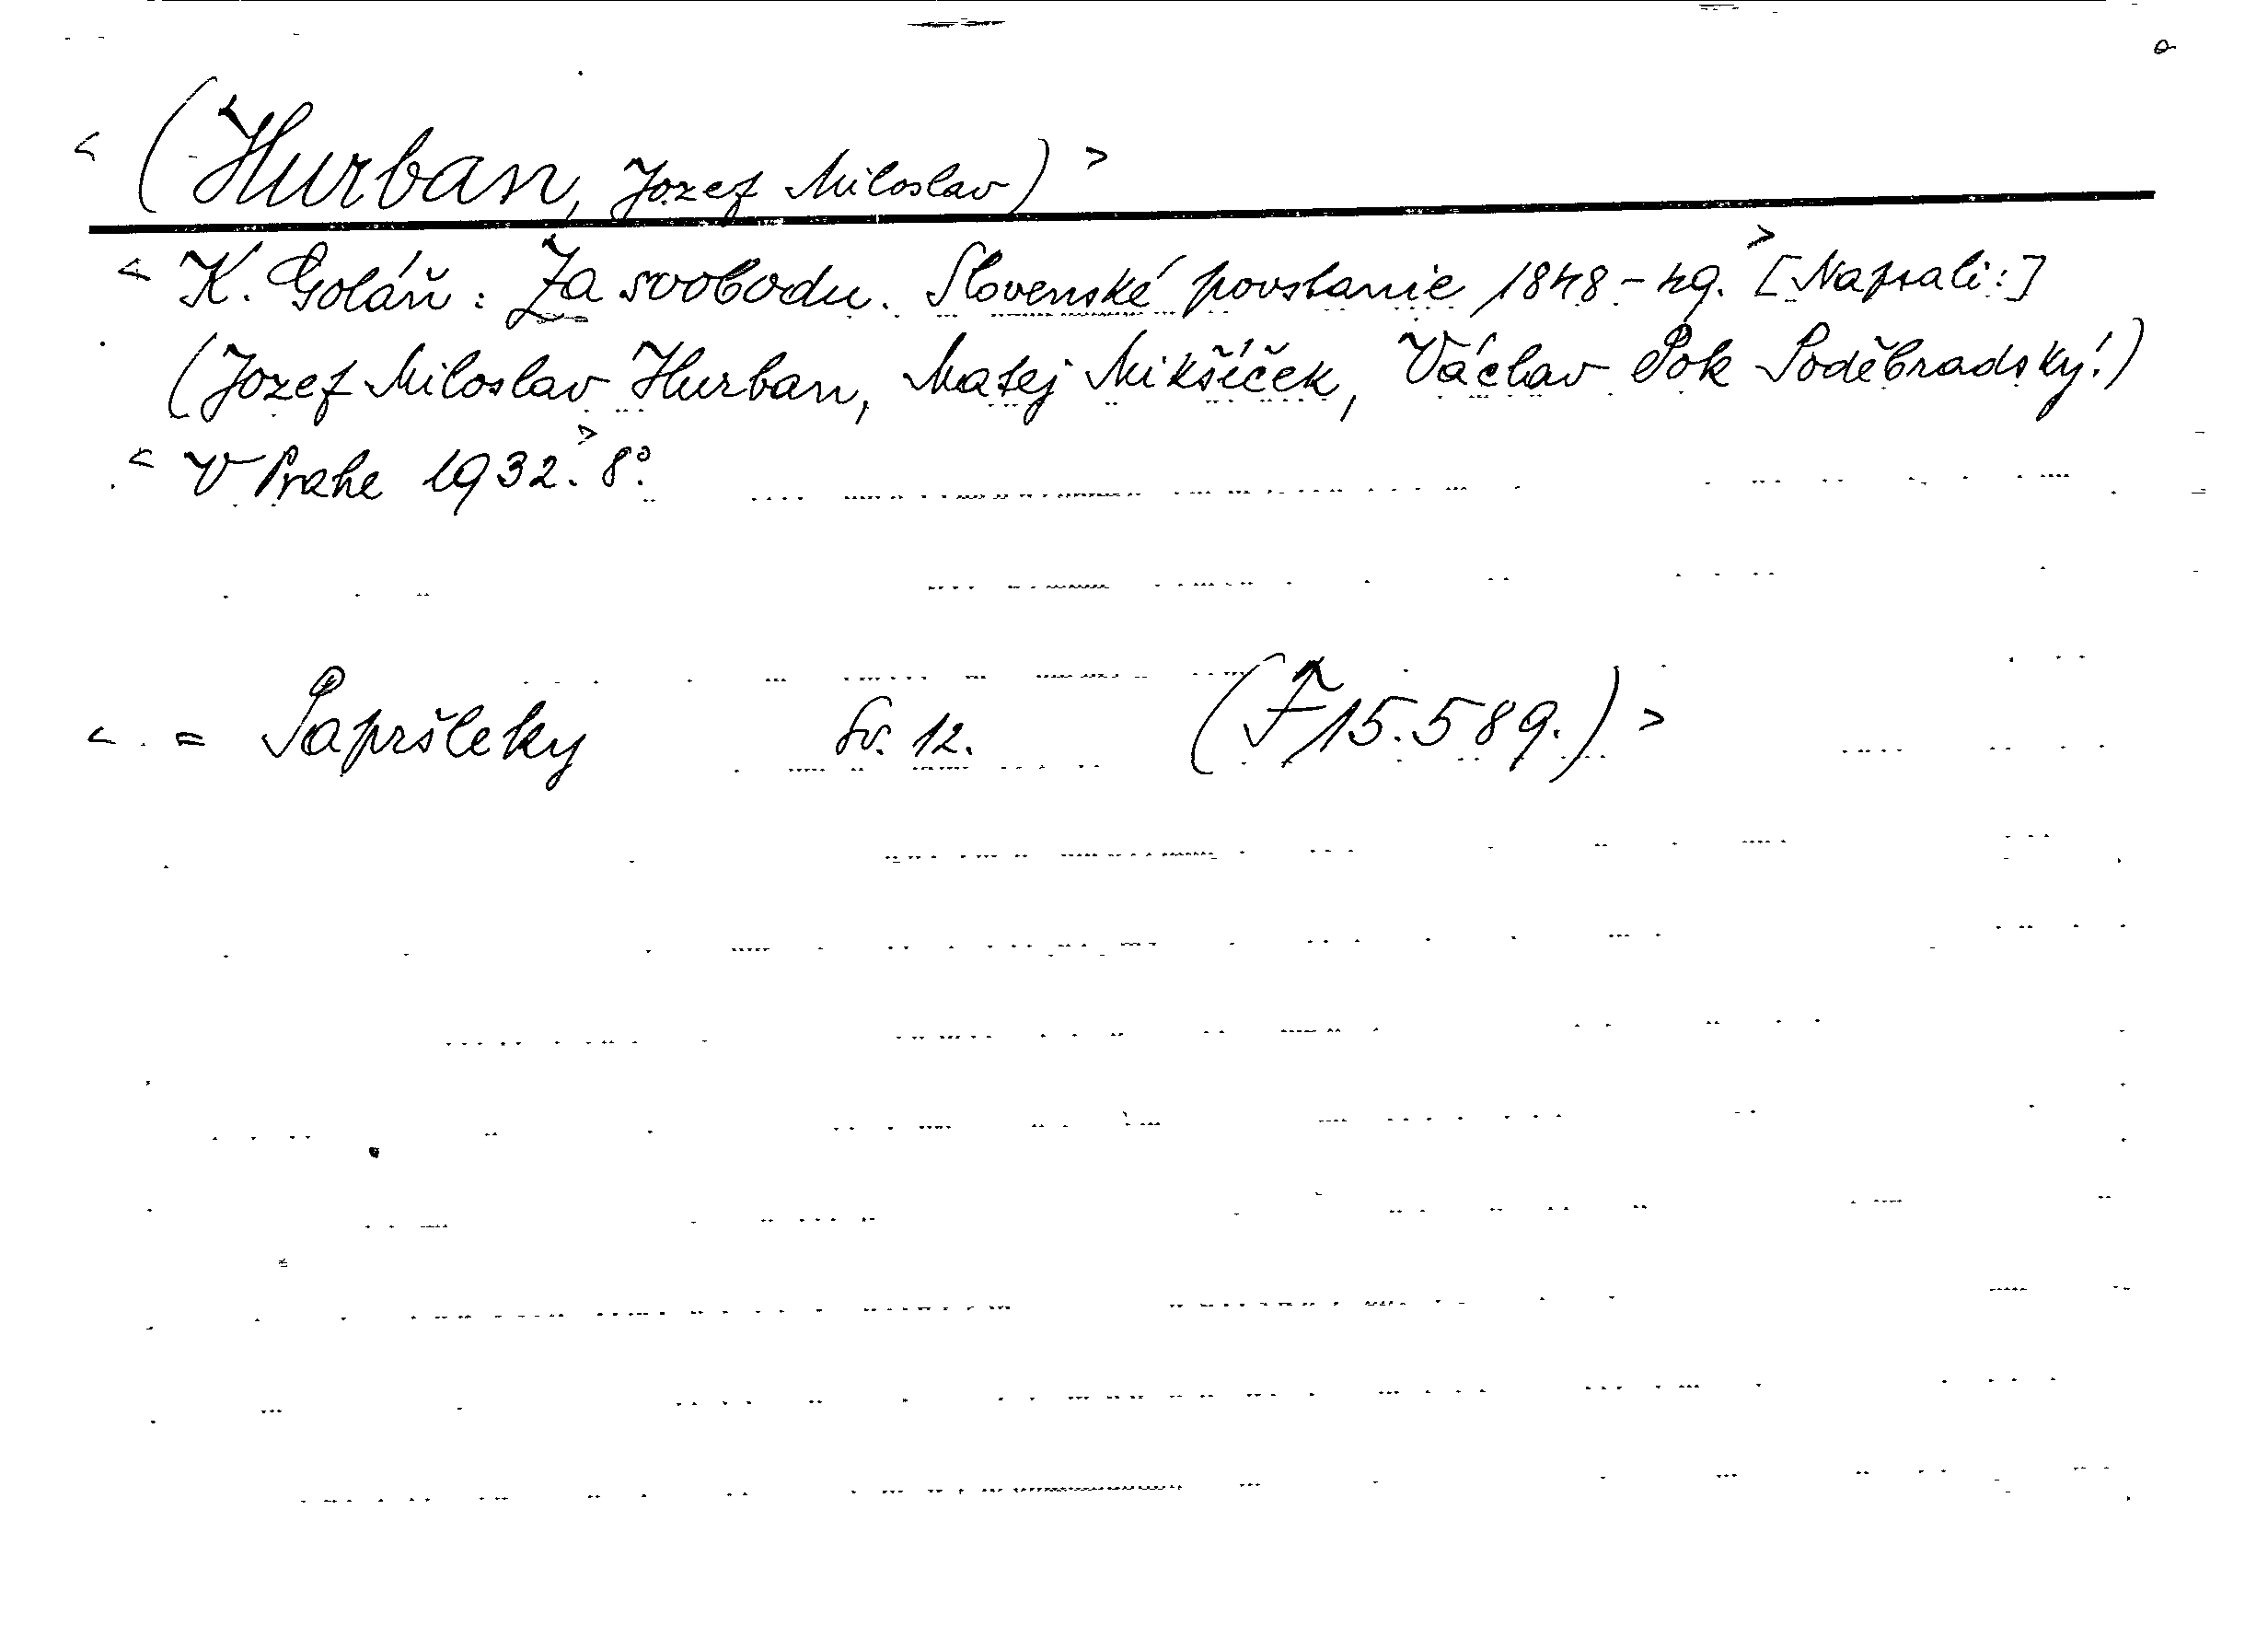 < (Hurban, Jozef Miloslav) >
< K. Goláň: Za svobodu. Slovenské povstanie 1848-49. > [Napsali:]
(Jozef Miloslav Hurban, Matej Mikšíček, Václav Pok Poděbradský.)
< V Prahe 1932. > 8°.
< = Papršleky Sv. 12. (F 15.589.) >